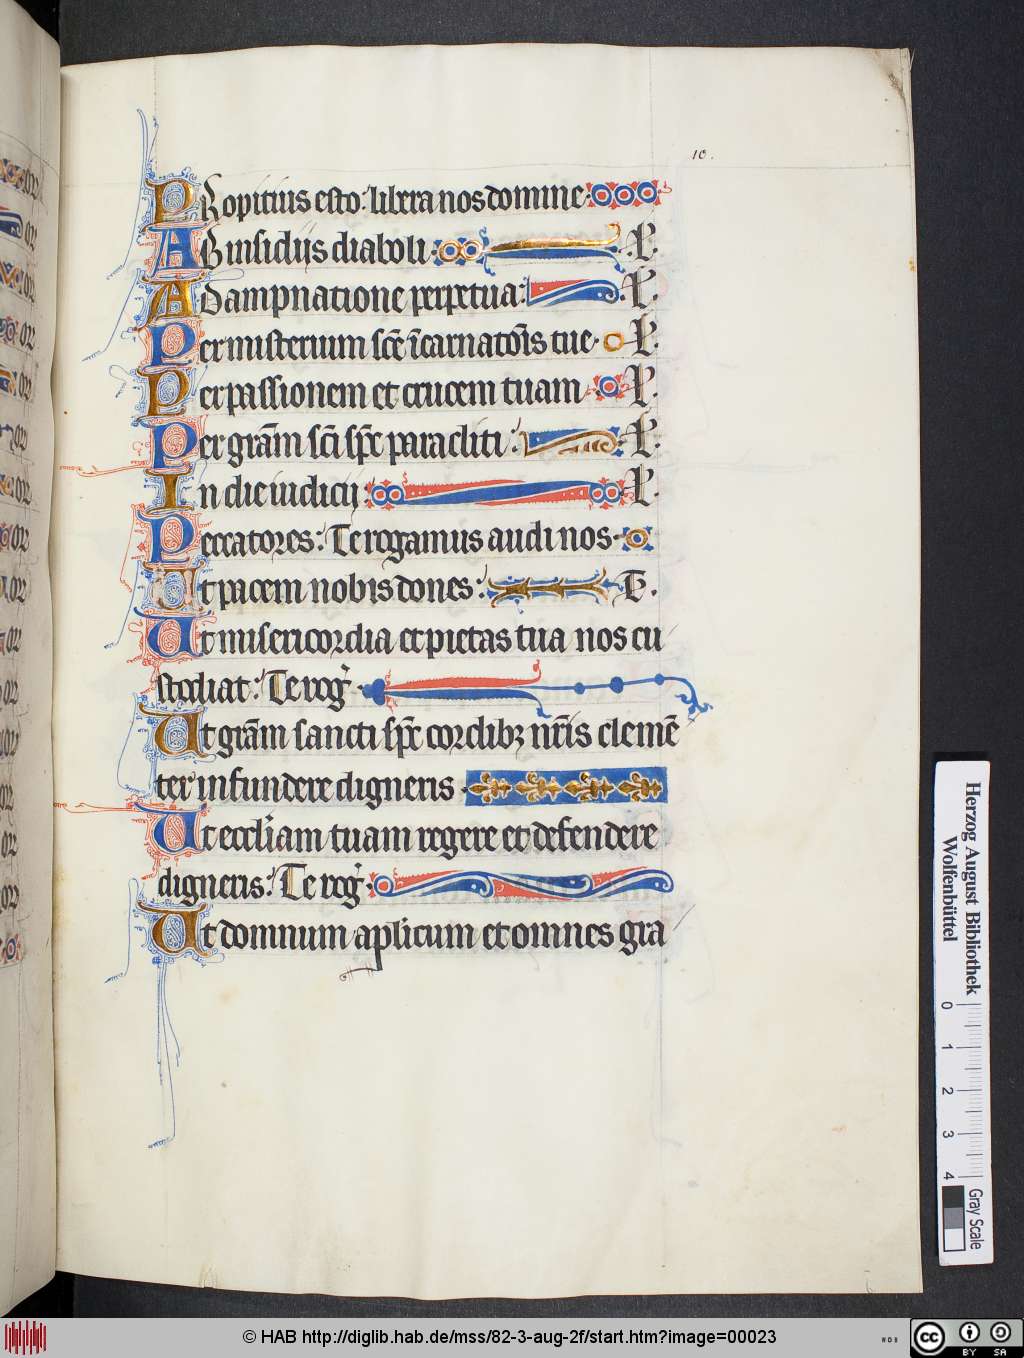 10.
PRopitius esto: libera nos domine
AB insidijs diaboli: L.
A Dampnatione perpetua: L.
Per misterium scē īcarnatōis tue. L.
Per passionem et crucem tuam L.
Per grām scī spc paracliti: L.
In die iudicij L.
Peccatores: Te rogamus audi nos
Ut pacem nobis dones: T.
Ut misericordia et pietas tua nos cu
stodiat: Te rog
Ut grām sancti spc cordibꝫ nrīs clemē
ter infundere digneris
Ut eccliam tuam regere et defendere
digneris: Te rog
Ut domnum aplicum et omnes gra
Herzog August Bibliothek
Wolfenbüttel
0 1 2 3 4
Gray Scale
© HAB http://diglib.hab.de/mss/82-3-aug-2f/start.htm?image=00023
WDB
cc BY SA